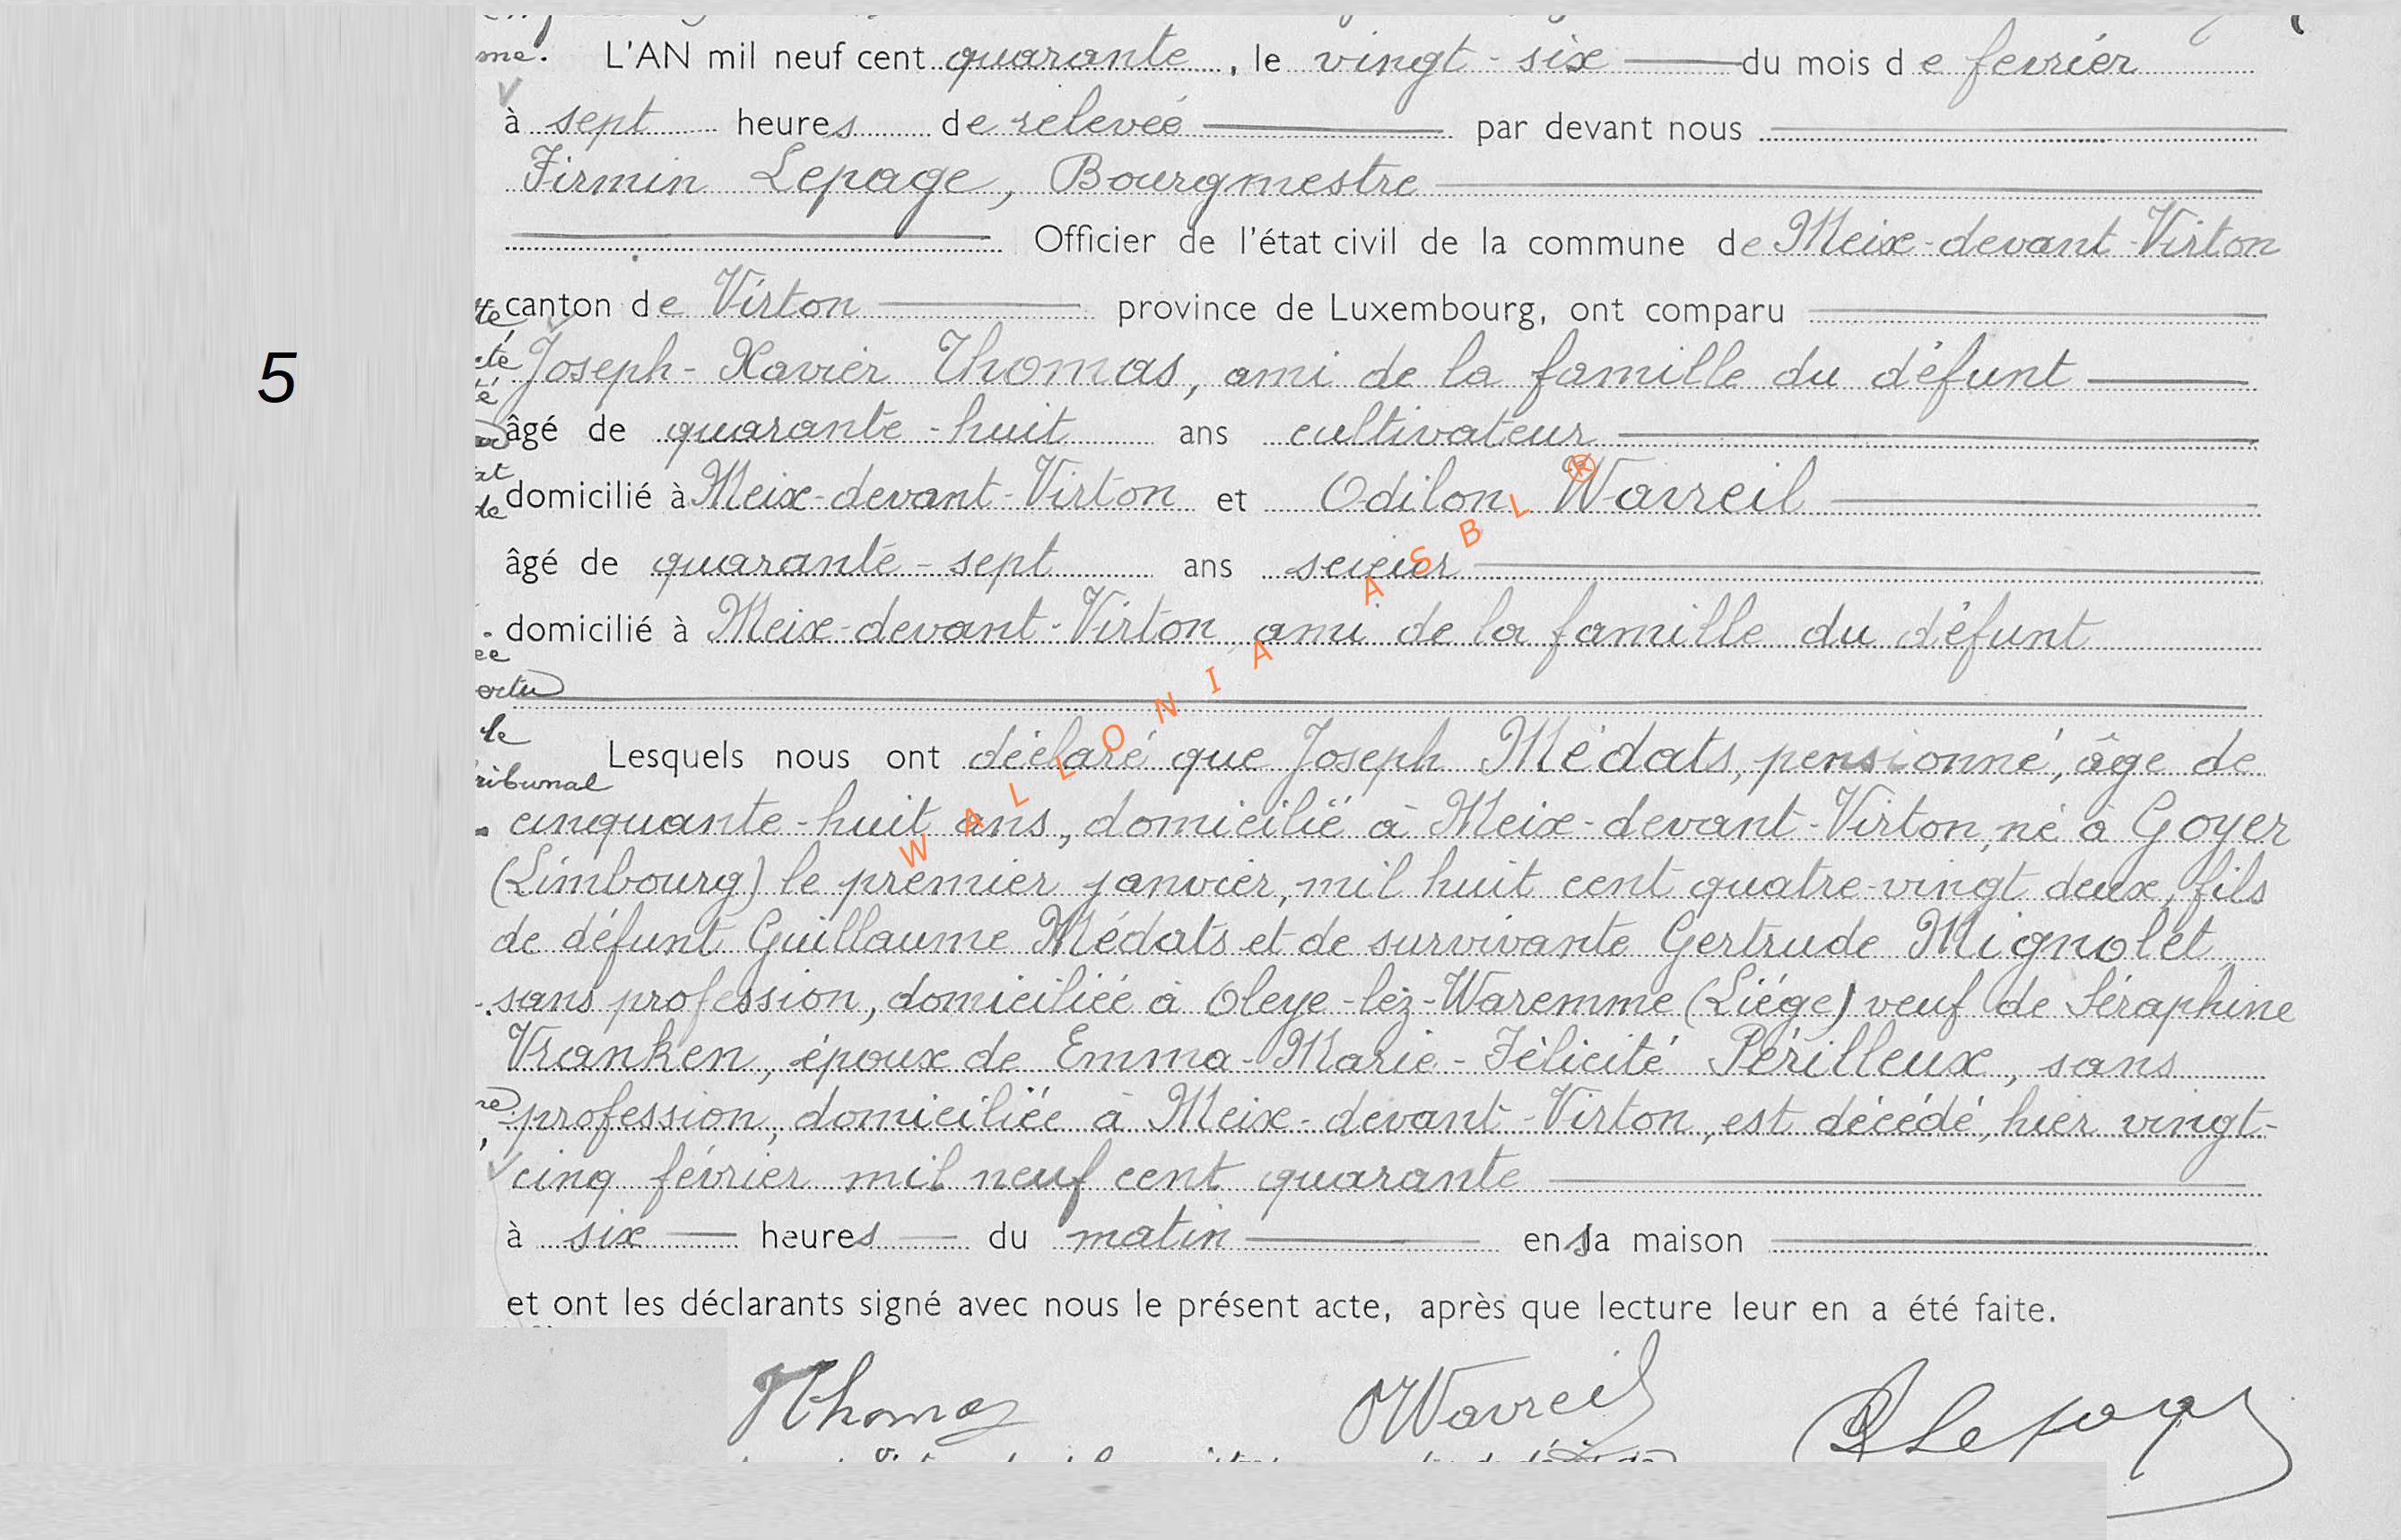 me. L'AN mil neuf cent quarante, le vingt-six du mois de fevrier
à sept heures de relevée par devant nous
Firmin Lepage, Bourgmestre
Officier de l'état civil de la commune de Meix-devant-Virton
canton de Virton province de Luxembourg, ont comparu
5
Joseph-Xavier Thomas, ami de la famille du défunt
âgé de quarante-huit ans cultivateur
domicilié à Meix-devant-Virton et Odilon Wavreil
âgé de quarante-sept ans scieur
domicilié à Meix-devant-Virton ami de la famille du défunt
Lesquels nous ont déclaré que Joseph Médats, pensionné, âge de
ribunal
cinquante-huit ans, domicilié à Meix-devant-Virton, né à Goyer
(Limbourg) le premier janvier, mil huit cent quatre-vingt deux, fils
de défunt Guillaume Médats et de survivante Gertrude Mignolet
sans profession, domiciliée à Oleye-lez-Waremme (Liége) veuf de Séraphine
Vranken, époux de Emma-Marie-Félicité Périlleux, sans
profession, domiciliée à Meix-devant-Virton, est décédé, hier vingt-
cinq février mil neuf cent quarante
à six heures du matin en sa maison
et ont les déclarants signé avec nous le présent acte, après que lecture leur en a été faite.
JThomas OWavreil FLepage
WALLONIA ASBL ®